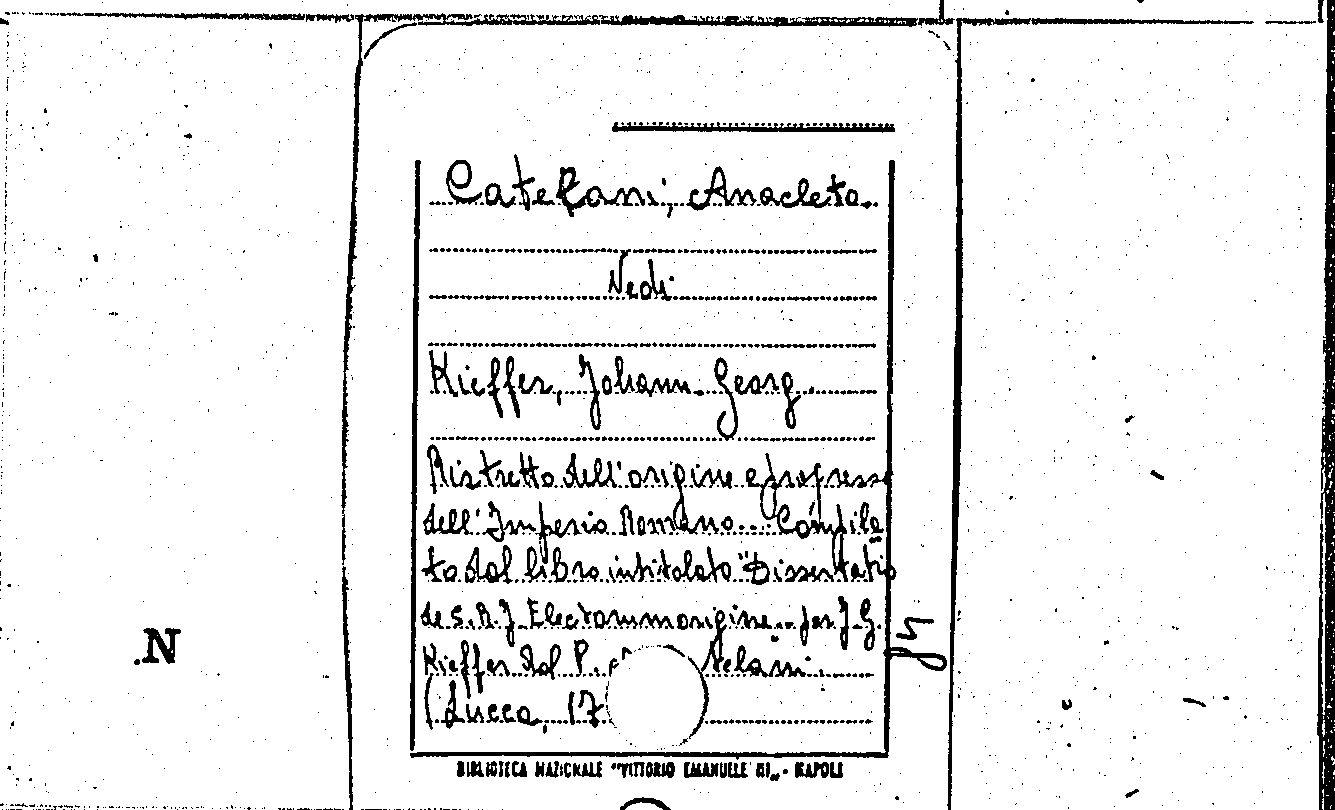 Catelani, Anacleto.
Vedi
Kieffer, Johann Georg.
Ristretto dell'origine e progresso
dell'Imperio Romano... Compila
to dal libro intitolato "Dissertatio
de S. R. J. Electorum origine... per J. G.
Kieffer dal P. telani.
(Lucca, 17
.N
BIBLIOTECA NAZIONALE "VITTORIO EMANUELE III" - NAPOLI